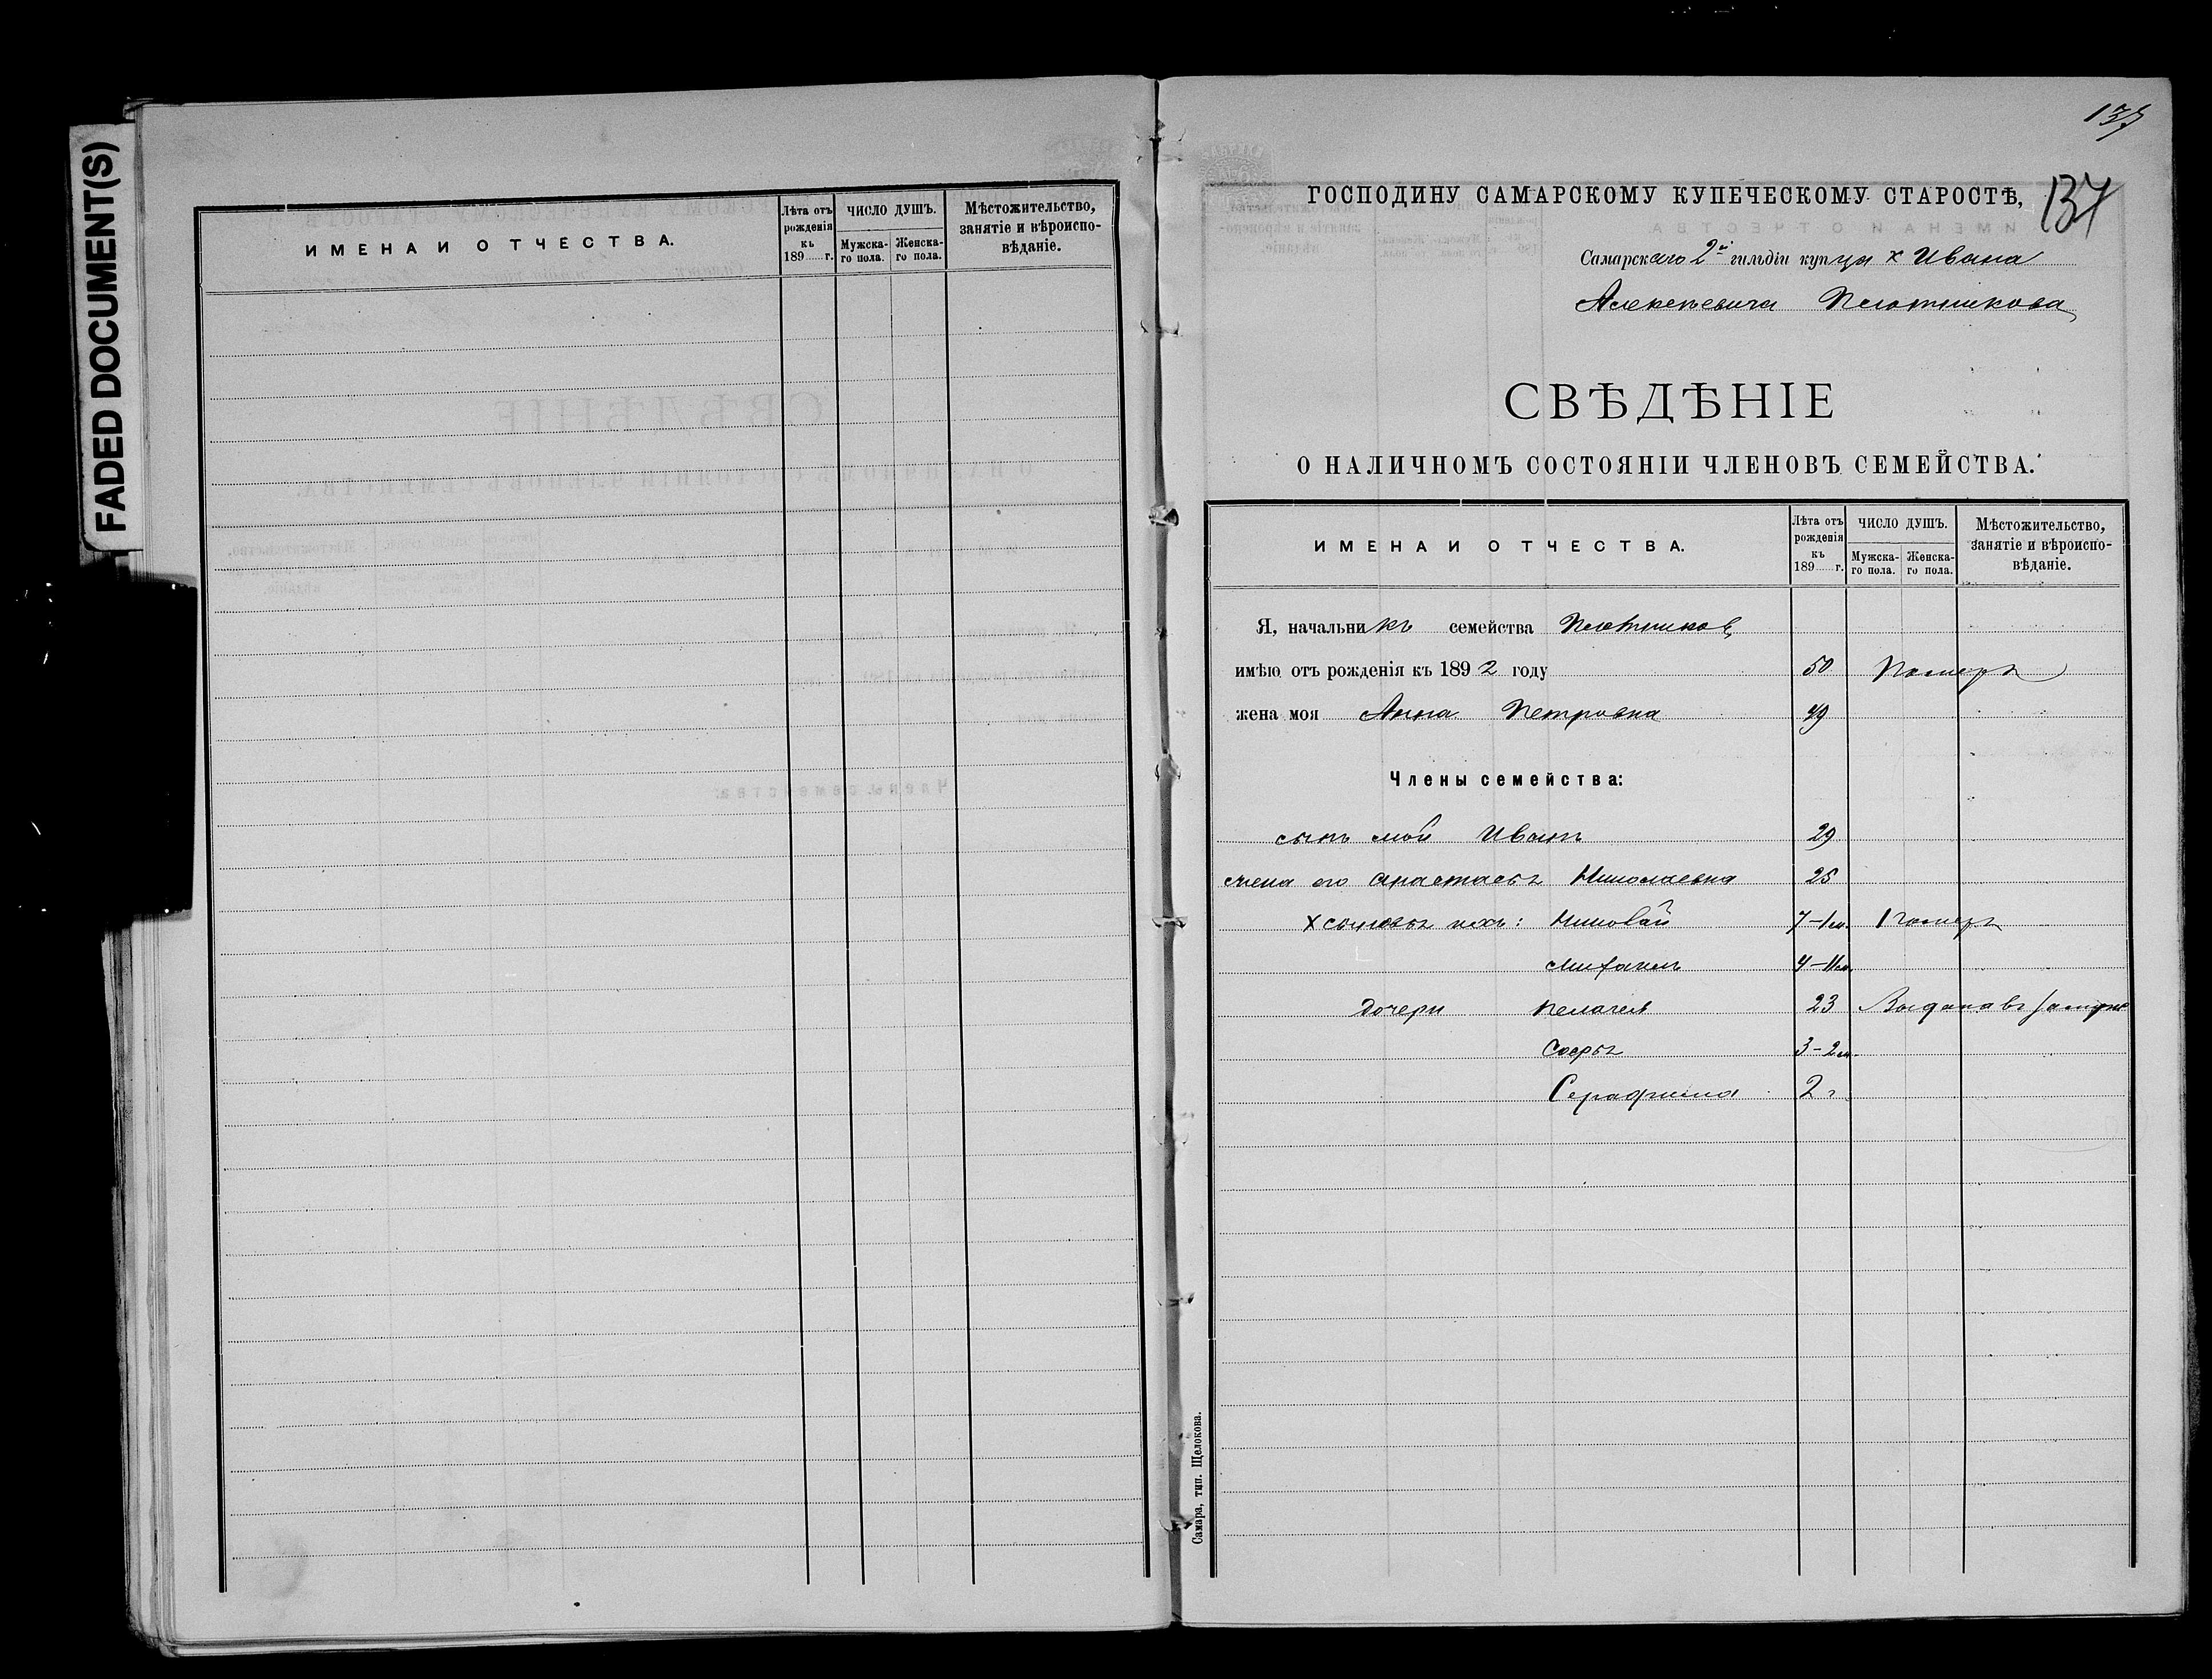 FADED DOCUMENT(S)
ИМЕНА И ОТЧЕСТВА.
Лѣта отъ рожденія къ 189 г.
ЧИСЛО ДУШЪ.
Мужска-го пола.
Женска-го пола.
Мѣстожительство, занятіе и вѣроиспо-вѣданіе.
137
137
ГОСПОДИНУ САМАРСКОМУ КУПЕЧЕСКОМУ СТАРОСТѢ,
Самарскаго 2й гильдіи купца х Ивана
Алексѣевича Плотникова
СВѢДѢНІЕ
О НАЛИЧНОМЪ СОСТОЯНІИ ЧЛЕНОВЪ СЕМЕЙСТВА.
ИМЕНА И ОТЧЕСТВА.
Лѣта отъ рожденія къ 189 г.
ЧИСЛО ДУШЪ.
Мужска-го пола.
Женска-го пола.
Мѣстожительство, занятіе и вѣроиспо-вѣданіе.
Я, начальникъ семейства Плотниковъ
имѣю отъ рожденія къ 1892 году 50 Померъ
жена моя Анна Петровна 49
Члены семейства:
сынъ мой Иванъ 29
жена его Анастасья Николаевна 25
х сыновья ихъ: Николай 7-1м. Померъ
Михаилъ 4-11м.
дочери Пелагея 23 Выдана въ замуж
Софья 3-2м.
Серафима 2 г
Самара, тип. Щелокова.